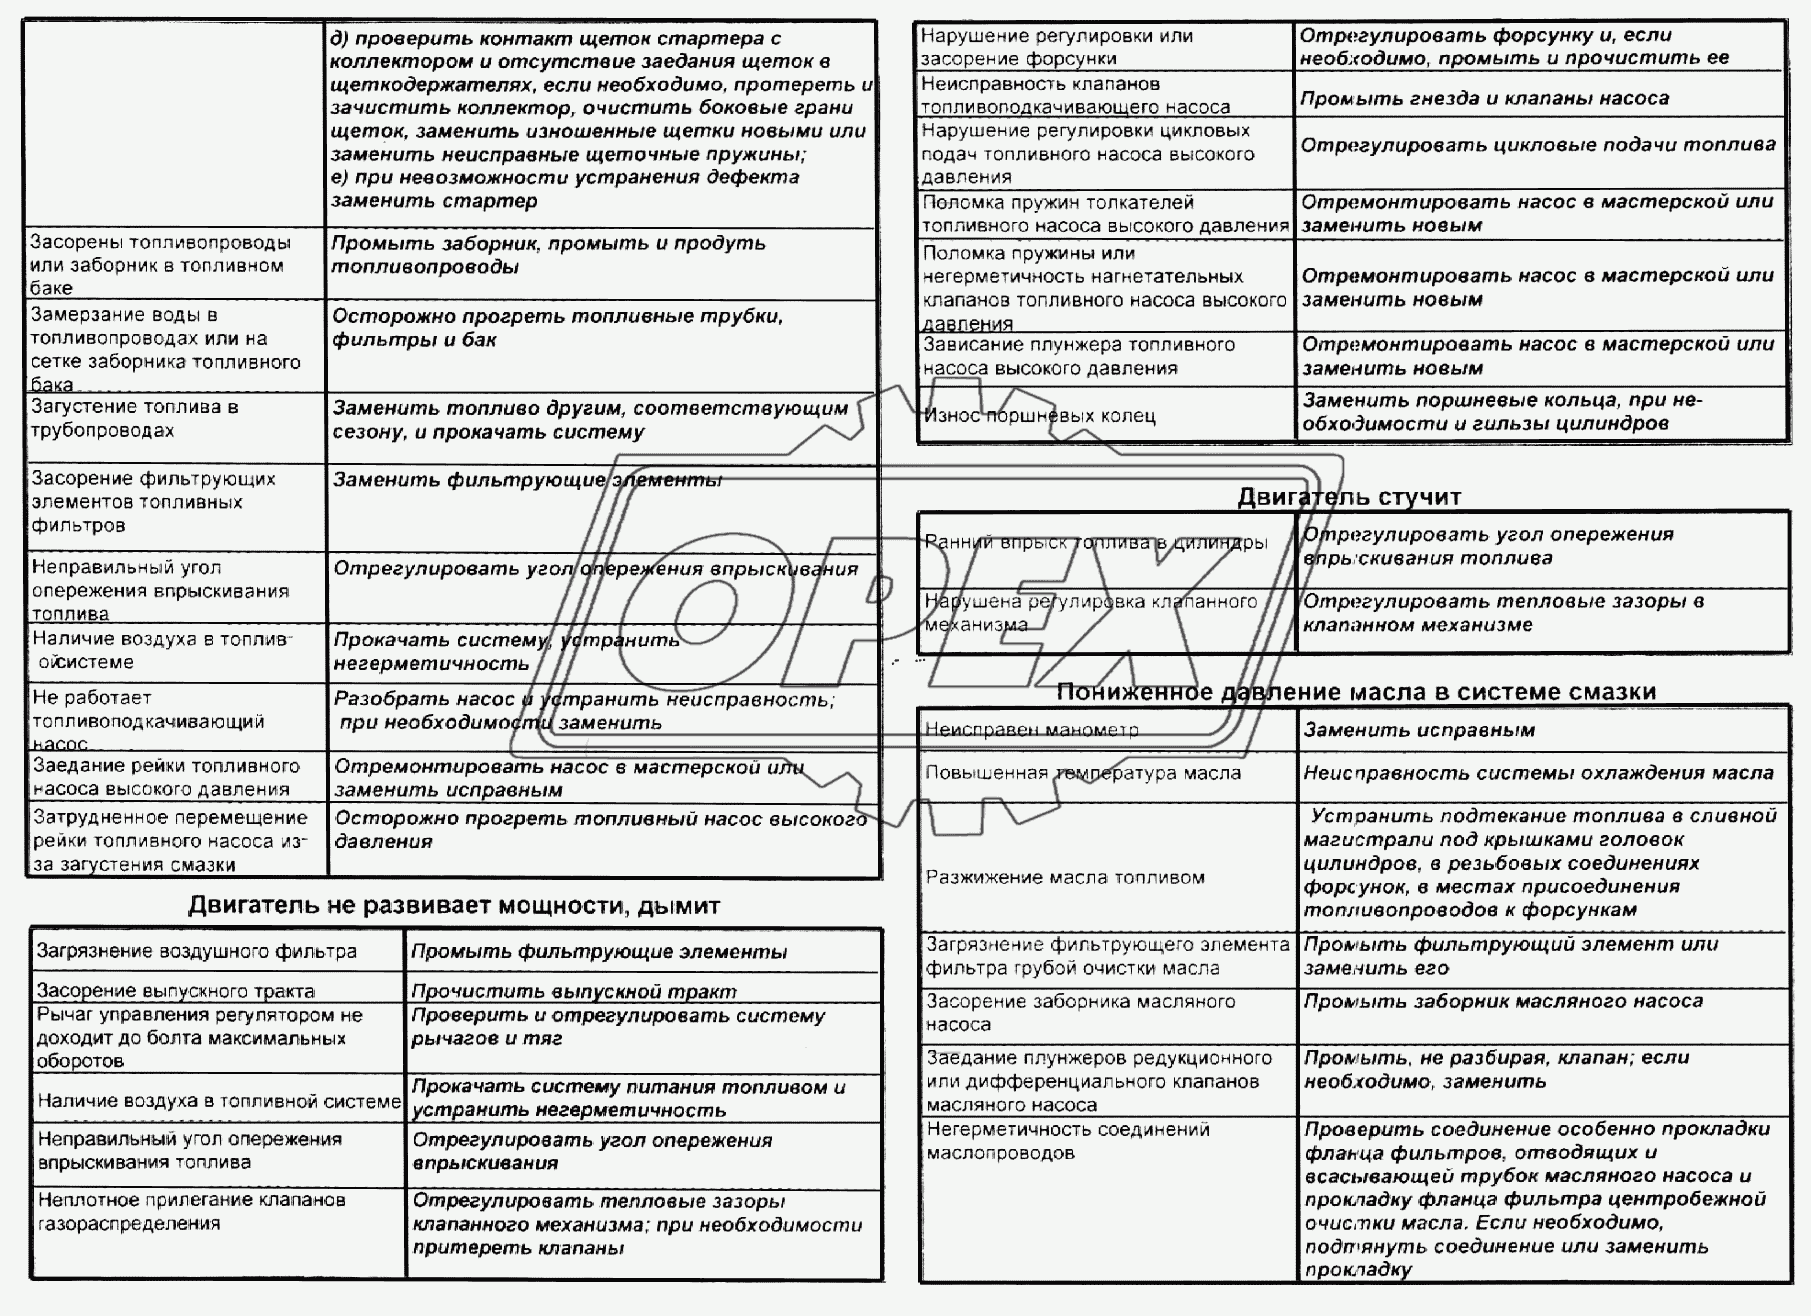 д) проверить контакт щеток стартера с
коллектором и отсутствие заедания щеток в
щеткодержателях, если необходимо, протереть и
зачистить коллектор, очистить боковые грани
щеток, заменить изношенные щетки новыми или
заменить неисправные щеточные пружины;
е) при невозможности устранения дефекта
заменить стартер
Засорены топливопроводы
или заборник в топливном
баке
Промыть заборник, промыть и продуть
топливопроводы
Замерзание воды в
топливопроводах или на
сетке заборника топливного
бака
Осторожно прогреть топливные трубки,
фильтры и бак
Загустение топлива в
трубопроводах
Заменить топливо другим, соответствующим
сезону, и прокачать систему
Засорение фильтрующих
элементов топливных
фильтров
Заменить фильтрующие элементы
Неправильный угол
опережения впрыскивания
топлива
Отрегулировать угол опережения впрыскивания
Наличие воздуха в топлив-
ойсистеме
Прокачать систему, устранить
негерметичность
Не работает
топливоподкачивающий
насос
Разобрать насос и устранить неисправность;
при необходимости заменить
Заедание рейки топливного
насоса высокого давления
Отремонтировать насос в мастерской или
заменить исправным
Затрудненное перемещение
рейки топливного насоса из-
за загустения смазки
Осторожно прогреть топливный насос высокого
давления
Двигатель не развивает мощности, дымит
Загрязнение воздушного фильтра
Промыть фильтрующие элементы
Засорение выпускного тракта
Прочистить выпускной тракт
Рычаг управления регулятором не
доходит до болта максимальных
оборотов
Проверить и отрегулировать систему
рычагов и тяг
Наличие воздуха в топливной системе
Прокачать систему питания топливом и
устранить негерметичность
Неправильный угол опережения
впрыскивания топлива
Отрегулировать угол опережения
впрыскивания
Неплотное прилегание клапанов
газораспределения
Отрегулировать тепловые зазоры
клапанного механизма; при необходимости
притереть клапаны
Нарушение регулировки или
засорение форсунки
Отрегулировать форсунку и, если
необходимо, промыть и прочистить ее
Неисправность клапанов
топливоподкачивающего насоса
Промыть гнезда и клапаны насоса
Нарушение регулировки цикловых
подач топливного насоса высокого
давления
Отрегулировать цикловые подачи топлива
Поломка пружин толкателей
топливного насоса высокого давления
Отремонтировать насос в мастерской или
заменить новым
Поломка пружины или
негерметичность нагнетательных
клапанов топливного насоса высокого
давления
Отремонтировать насос в мастерской или
заменить новым
Зависание плунжера топливного
насоса высокого давления
Отремонтировать насос в мастерской или
заменить новым
Износ поршневых колец
Заменить поршневые кольца, при не-
обходимости и гильзы цилиндров
Двигатель стучит
Ранний впрыск топлива в цилиндры
Отрегулировать угол опережения
впрыскивания топлива
Нарушена регулировка клапанного
механизма
Отрегулировать тепловые зазоры в
клапанном механизме
Пониженное давление масла в системе смазки
Неисправен манометр
Заменить исправным
Повышенная температура масла
Неисправность системы охлаждения масла
Разжижение масла топливом
Устранить подтекание топлива в сливной
магистрали под крышками головок
цилиндров, в резьбовых соединениях
форсунок, в местах присоединения
топливопроводов к форсункам
Загрязнение фильтрующего элемента
фильтра грубой очистки масла
Промыть фильтрующий элемент или
заменить его
Засорение заборника масляного
насоса
Промыть заборник масляного насоса
Заедание плунжеров редукционного
или дифференциального клапанов
масляного насоса
Промыть, не разбирая, клапан; если
необходимо, заменить
Негерметичность соединений
маслопроводов
Проверить соединение особенно прокладки
фланца фильтров, отводящих и
всасывающей трубок масляного насоса и
прокладку фланца фильтра центробежной
очистки масла. Если необходимо,
подтянуть соединение или заменить
прокладку
OPEX